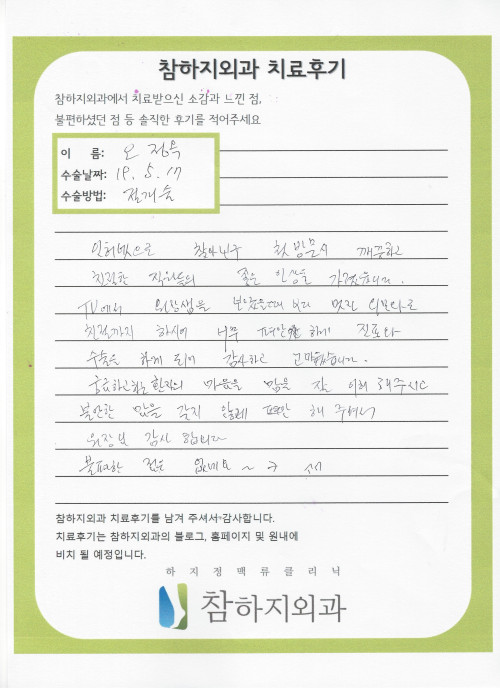 참하지외과 치료후기
참하지외과에서 치료받으신 소감과 느낀 점,
불편하셨던 점 등 솔직한 후기를 적어주세요
이 름: 오 정옥
수술날짜: 19. 5. 17
수술방법: 절개술
인터넷으로 찾아 첫방문시 깨끗하고
친절한 직원들의 좋은 인상을 가졌습니다.
TV에서 원장샘을 보았을때 보다 멋진 외모와
친절까지 하시어 너무 편안 하게 진료와
수술을 하게 되어 감사하고 고마웠습니다.
궁금하고 환자의 마음을 맘을 잘 이해 해주시고
불안한 맘을 갖지 않게 편안 해 주셔서
원장님 감사 합니다
불편한 점은 없네요 ~
참하지외과 치료후기를 남겨 주셔서 감사합니다.
치료후기는 참하지외과의 블로그, 홈페이지 및 원내에
비치 될 예정입니다.
하 지 정 맥 류 클 리 닉
참하지외과